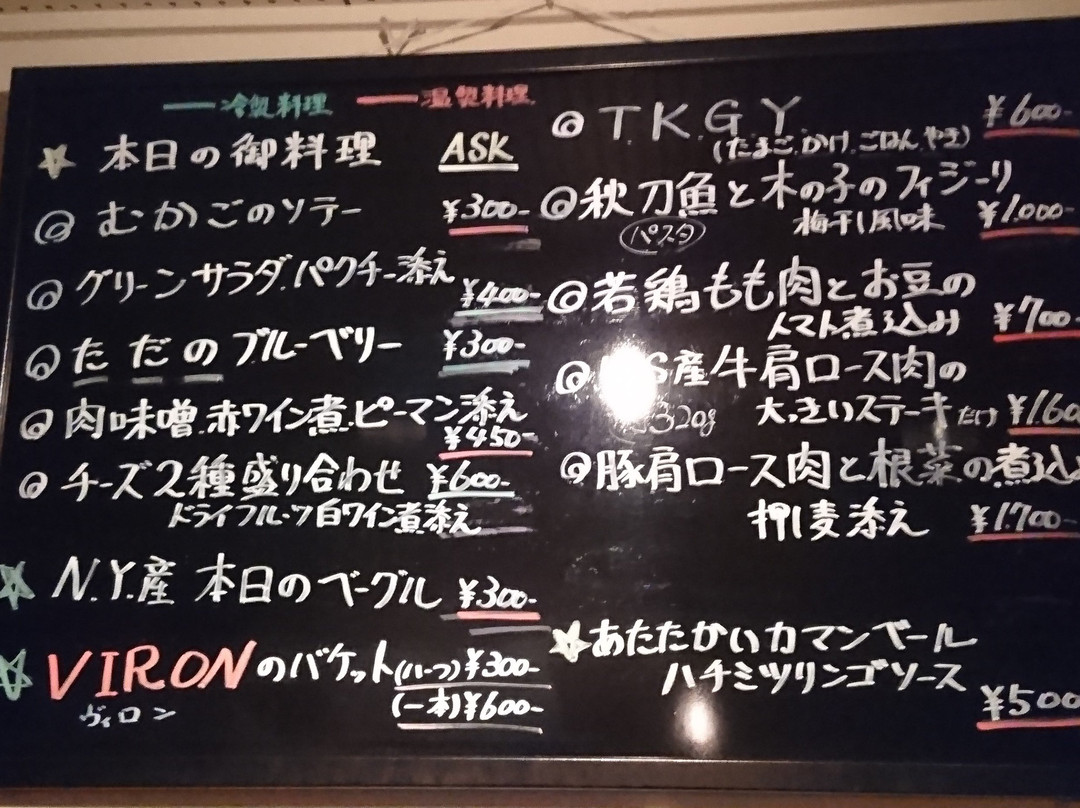 冷製料理 温製料理
本日の御料理 ASK
むかごのソテー ¥300-
グリーンサラダ.パクチー添え
¥400-
ただのブルーベリー ¥300-
肉味噌.赤ワイン煮.ピーマン添え
¥450-
チーズ2種盛り合わせ ¥600-
ドライフルーツ白ワイン煮添え
N.Y.産 本日のベーグル ¥300-
VIRONのバケット(ハーフ)¥300-
ヴィロン (一本)¥600-
T.K.G.Y ¥600-
(たまご.かけ.ごはん.やき)
秋刀魚と木の子のフィジーリ
パスタ 梅干し風味 ¥1.000-
若鶏もも肉とお豆の
トマト煮込み ¥700-
S産牛肩ロース肉の
320g 大っきいステーキだけ ¥1.60
豚肩ロース肉と根菜の煮込
押し麦添え ¥1.700-
あたたかいカマンベール
ハチミツリンゴソース
¥500